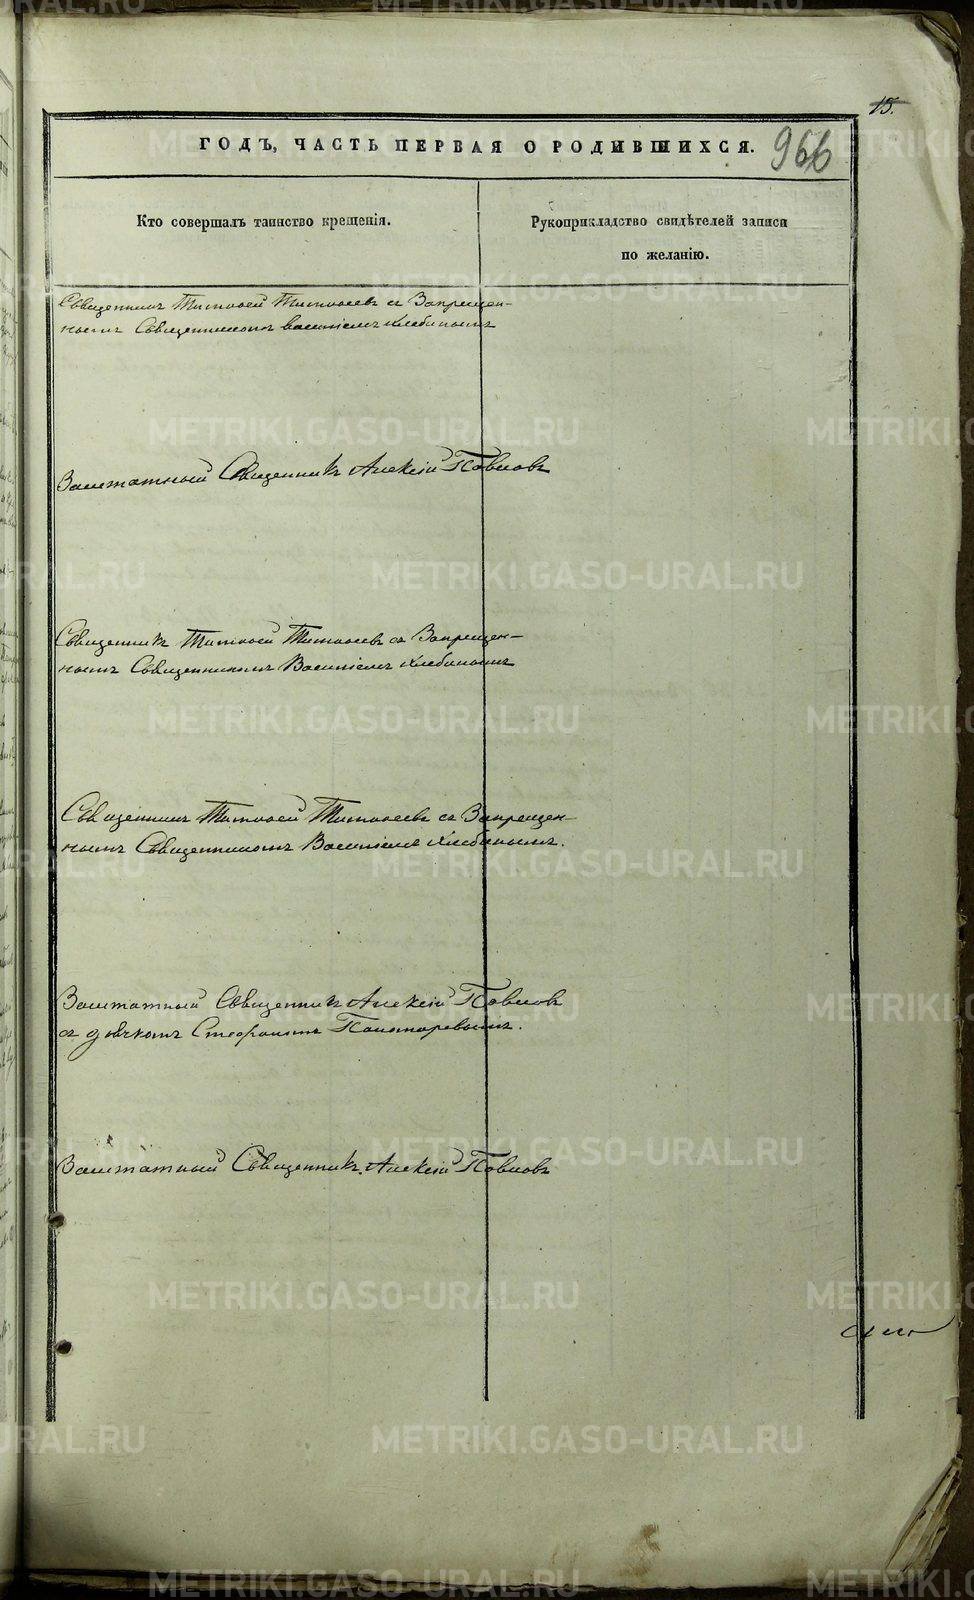 15.
ГОДЪ, ЧАСТЬ ПЕРВАЯ О РОДИВШИХСЯ.
966
Кто совершалъ таинство крещенія.
Рукоприкладство свидѣтелей записи
по желанію.
Священникъ Тимофей Тимофеевъ съ Запрещен-
нымъ Священникомъ Василіемъ Хлебинымъ
Заштатный Священникъ Алексій Павловъ
Священникъ Тимофей Тимофеевъ съ Запрещен-
нымъ Священникомъ Василіемъ Хлебинымъ
Священникъ Тимофей Тимофеевъ съ Запрещен-
нымъ Священникомъ Василіемъ Хлебинымъ.
Заштатный Священникъ Алексій Павловъ
съ дьячкомъ Стефаномъ Пономаревымъ.
Заштатный Священникъ Алексій Павловъ
METRIKI.GASO-URAL.RU